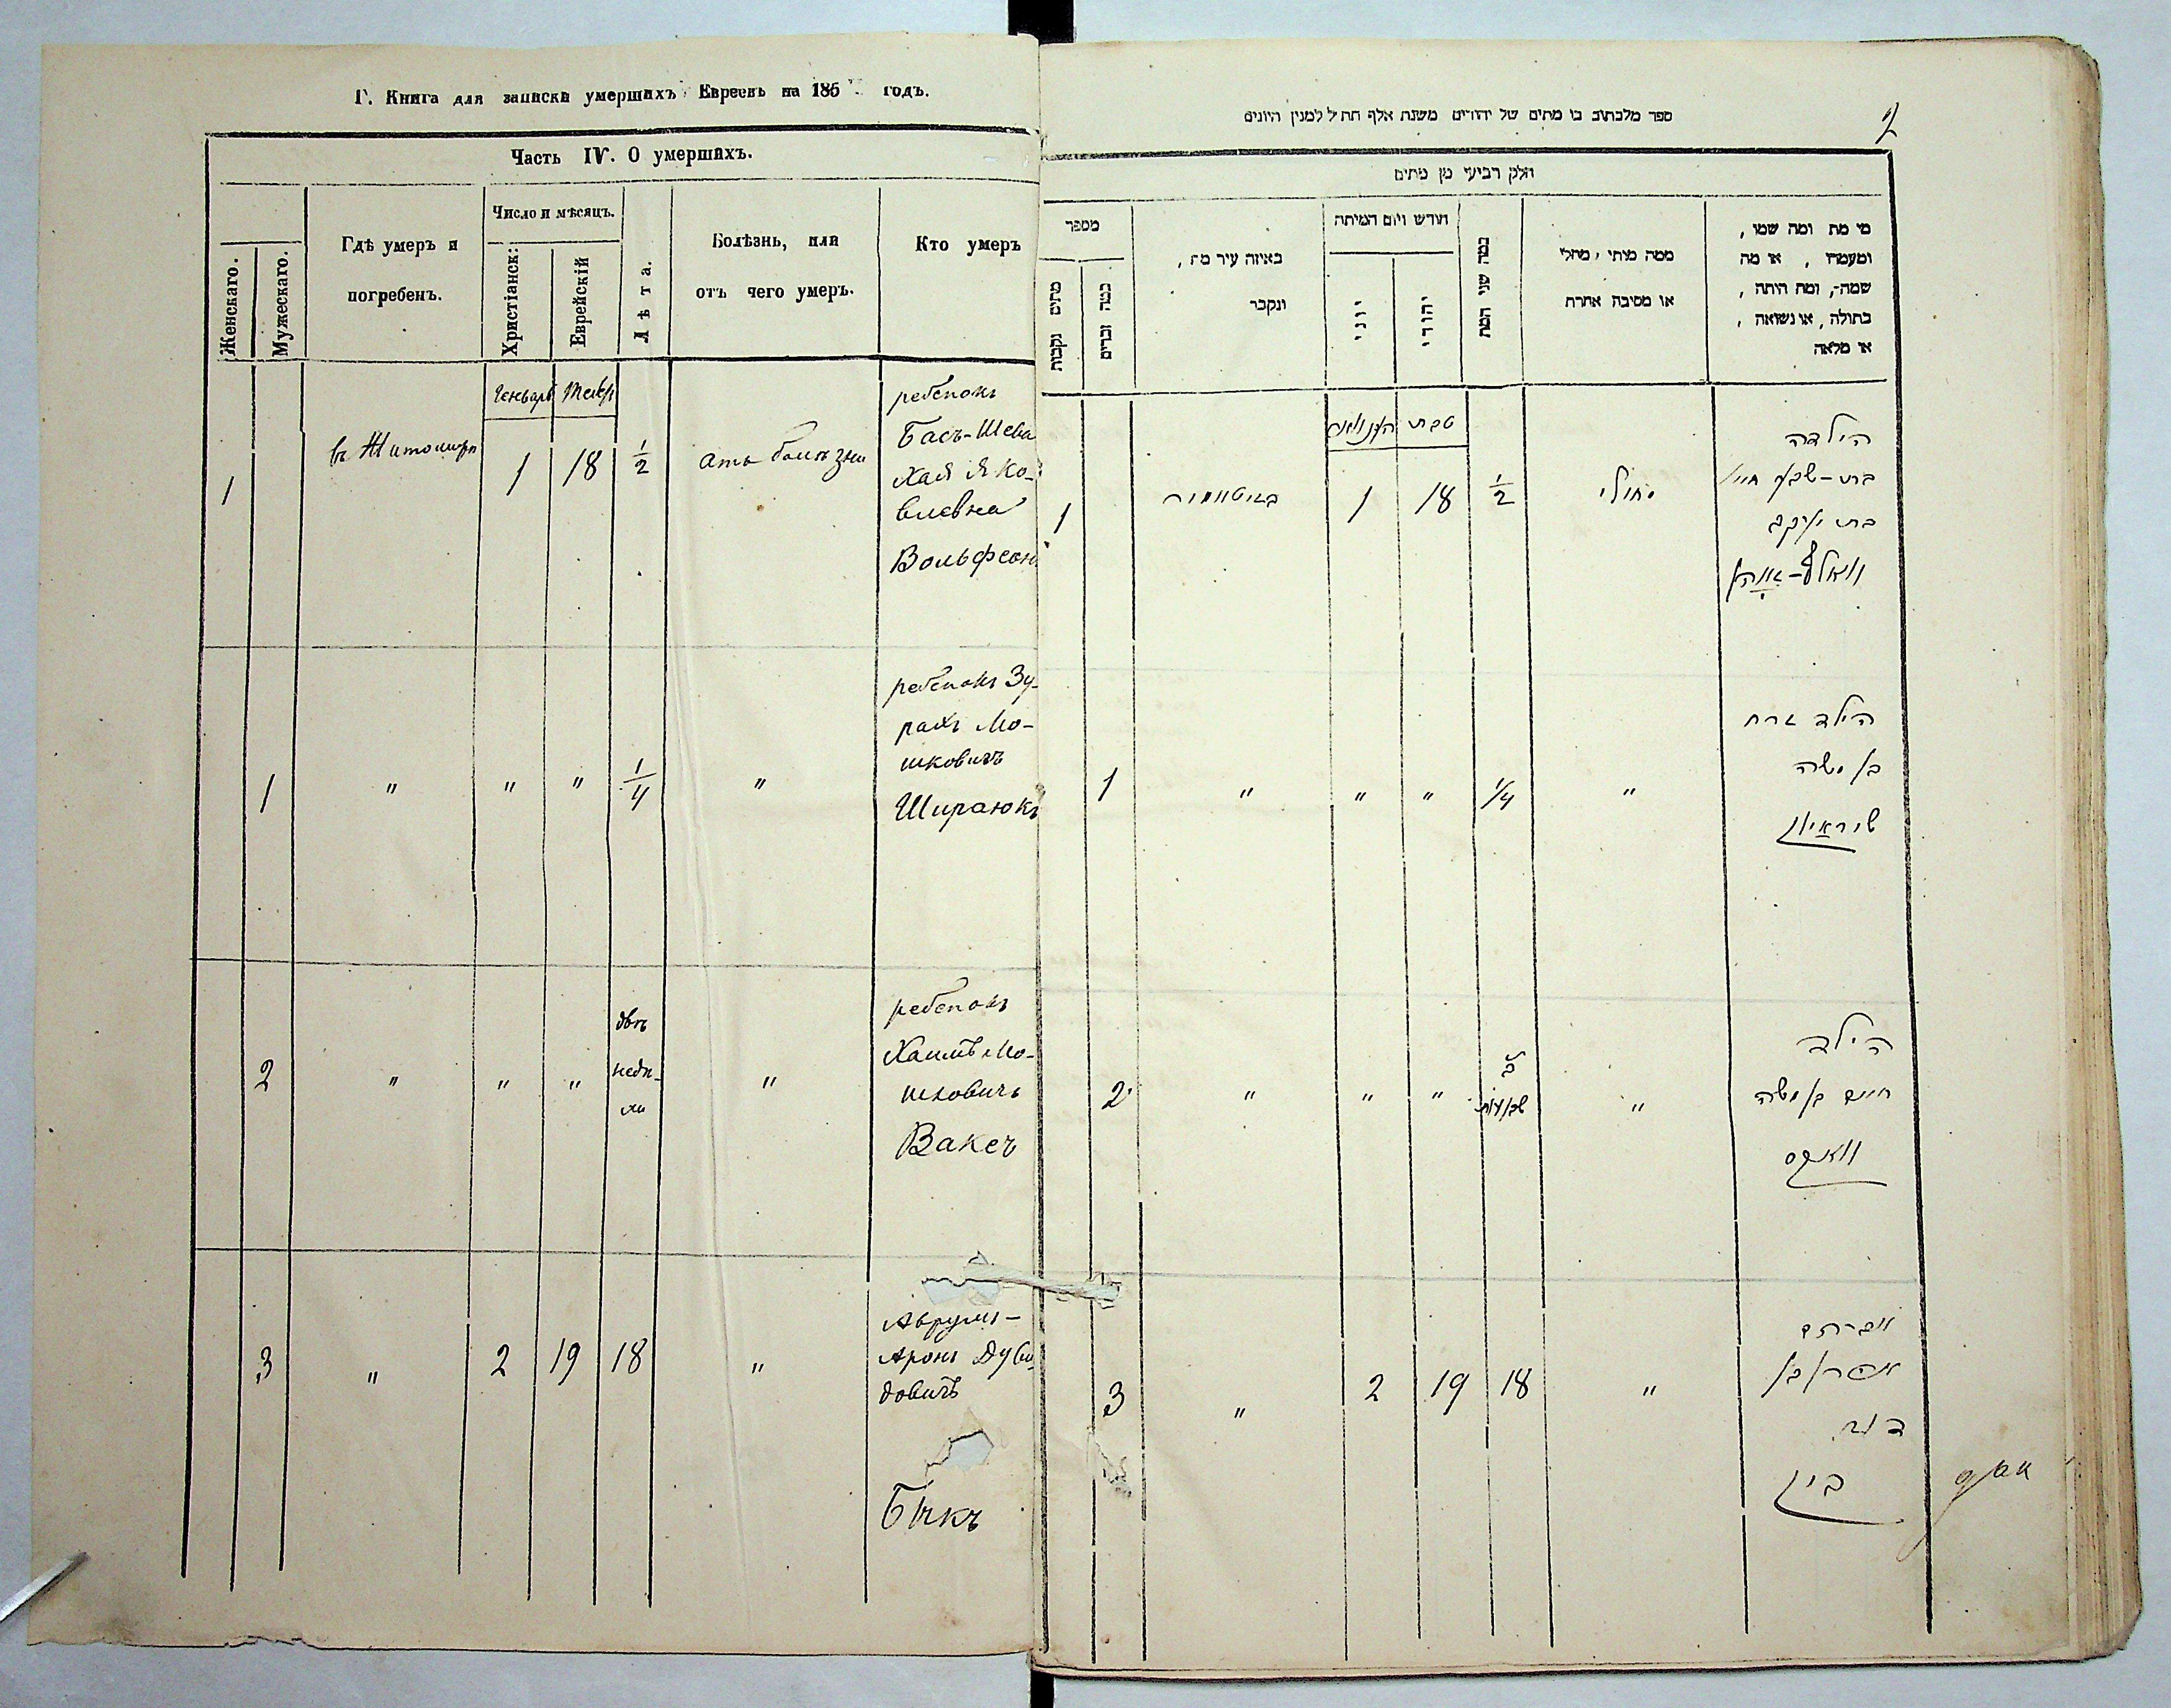 Г. Книга для записки умершихъ Евреевъ на 185 годъ.
Часть IV. О умершихъ.
Женскаго.
Мужескаго.
Гдѣ умеръ и
погребенъ.
Число и мѣсяцъ.
Христіанск:
Еврейскій
Лѣта.
Болѣзнь, или
отъ чего умеръ.
Кто умеръ
Генварь
1
въ Житомирѣ
1
18
1/2
ребенокъ
Бась-Шева
Хая Яко-
влевна
Вольфсонъ
1
"
"
"
1/4
"
ребенокъ Зу-
рахъ Мо-
шковичъ
Шираюкъ
2
"
"
"
двѣ
недѣ-
ли
"
ребенокъ
Хаимъ Мо-
шковичъ
Ваксъ
3
"
2
19
18
"
Аврумъ-
Аронъ Дуви-
довичъ
Бикъ
ספר מלכתוב בו מתים של יהודים משנת אלף תת"ל למנין היונים
2
חלק רביעי מן מתים
מספר
מתים נקבות
כמה זכרים
באיזה עיר מת,
ונקבר
חודש ויום המיתה
יוני
יהודי
כמה שני המת
ממה מיתי, מחלי
או מסיבה אחרת
מי מת ומה שמו,
ומעמדו, או מה
שמה, ומה היתה,
בתולה, או נשואה,
או מלאה
יאנואר
טבת
1
בזיטאמיר
1
18
1/2
מחולי
הילדה
בת-שבע חיי'
בת יעקב
וואלף-זאהן
1
"
"
"
1/4
"
הילד זרח
בן משה
שיראיוק
2
"
"
"
ב'
שבועות
"
הילד
חיים בן משה
וואקס
3
"
2
19
18
"
אברהם
אהרן בן
דוד
ביק